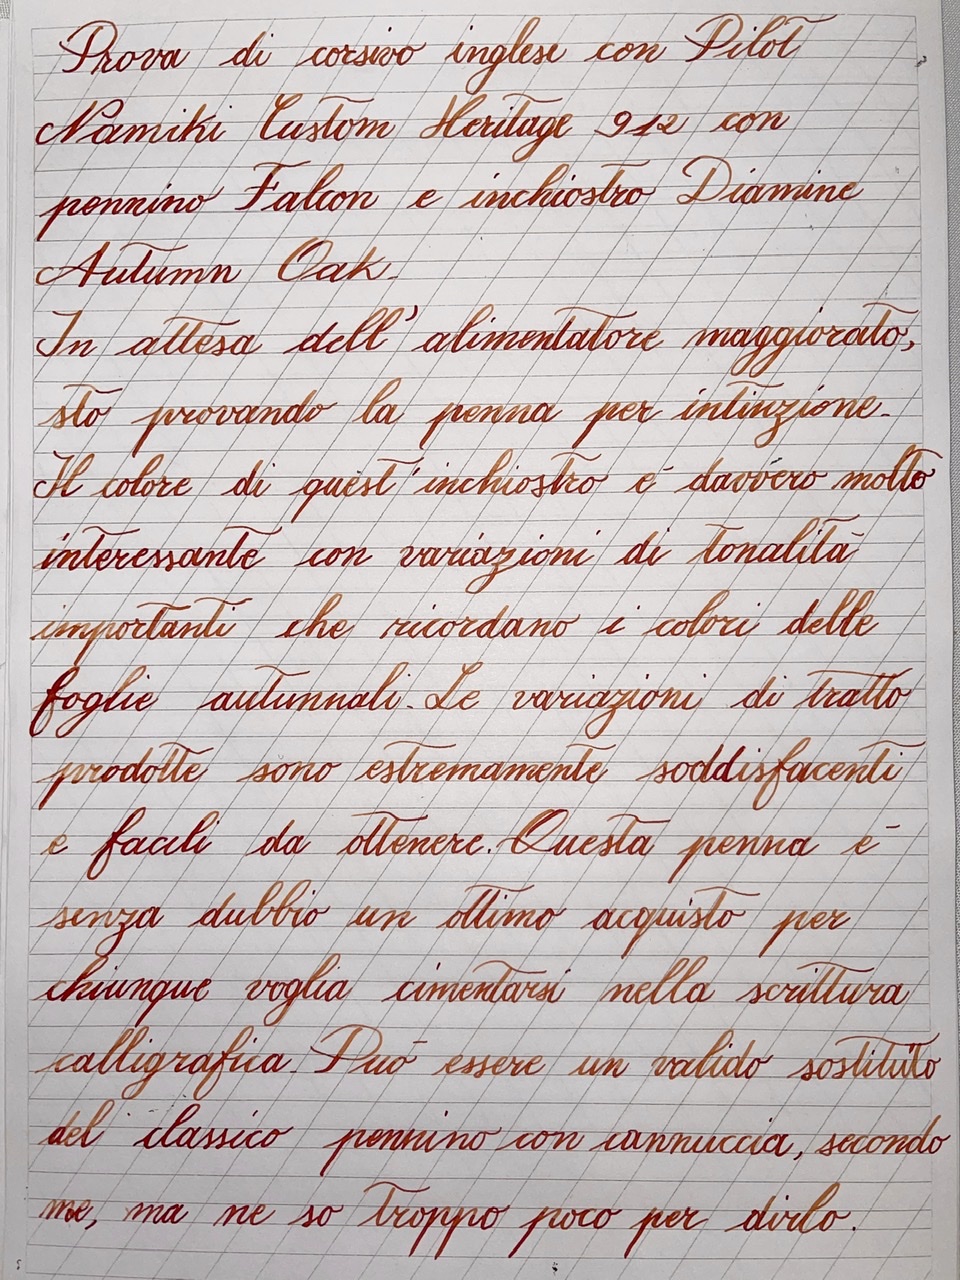 Prova di corsivo inglese con Pilot
Namiki Custom Heritage 912 con
pennino Falcon e inchiostro Diamine
Autumn Oak.
In attesa dell'alimentatore maggiorato,
sto provando la penna per intinzione.
Il colore di quest'inchiostro è davvero molto
interessante con variazioni di tonalità
importanti che ricordano i colori delle
foglie autunnali. Le variazioni di tratto
prodotte sono estremamente soddisfacenti
e facili da ottenere. Questa penna è
senza dubbio un ottimo acquisto per
chiunque voglia cimentarsi nella scrittura
calligrafica. Può essere un valido sostituto
del classico pennino con cannuccia, secondo
me, ma ne so troppo poco per dirlo.